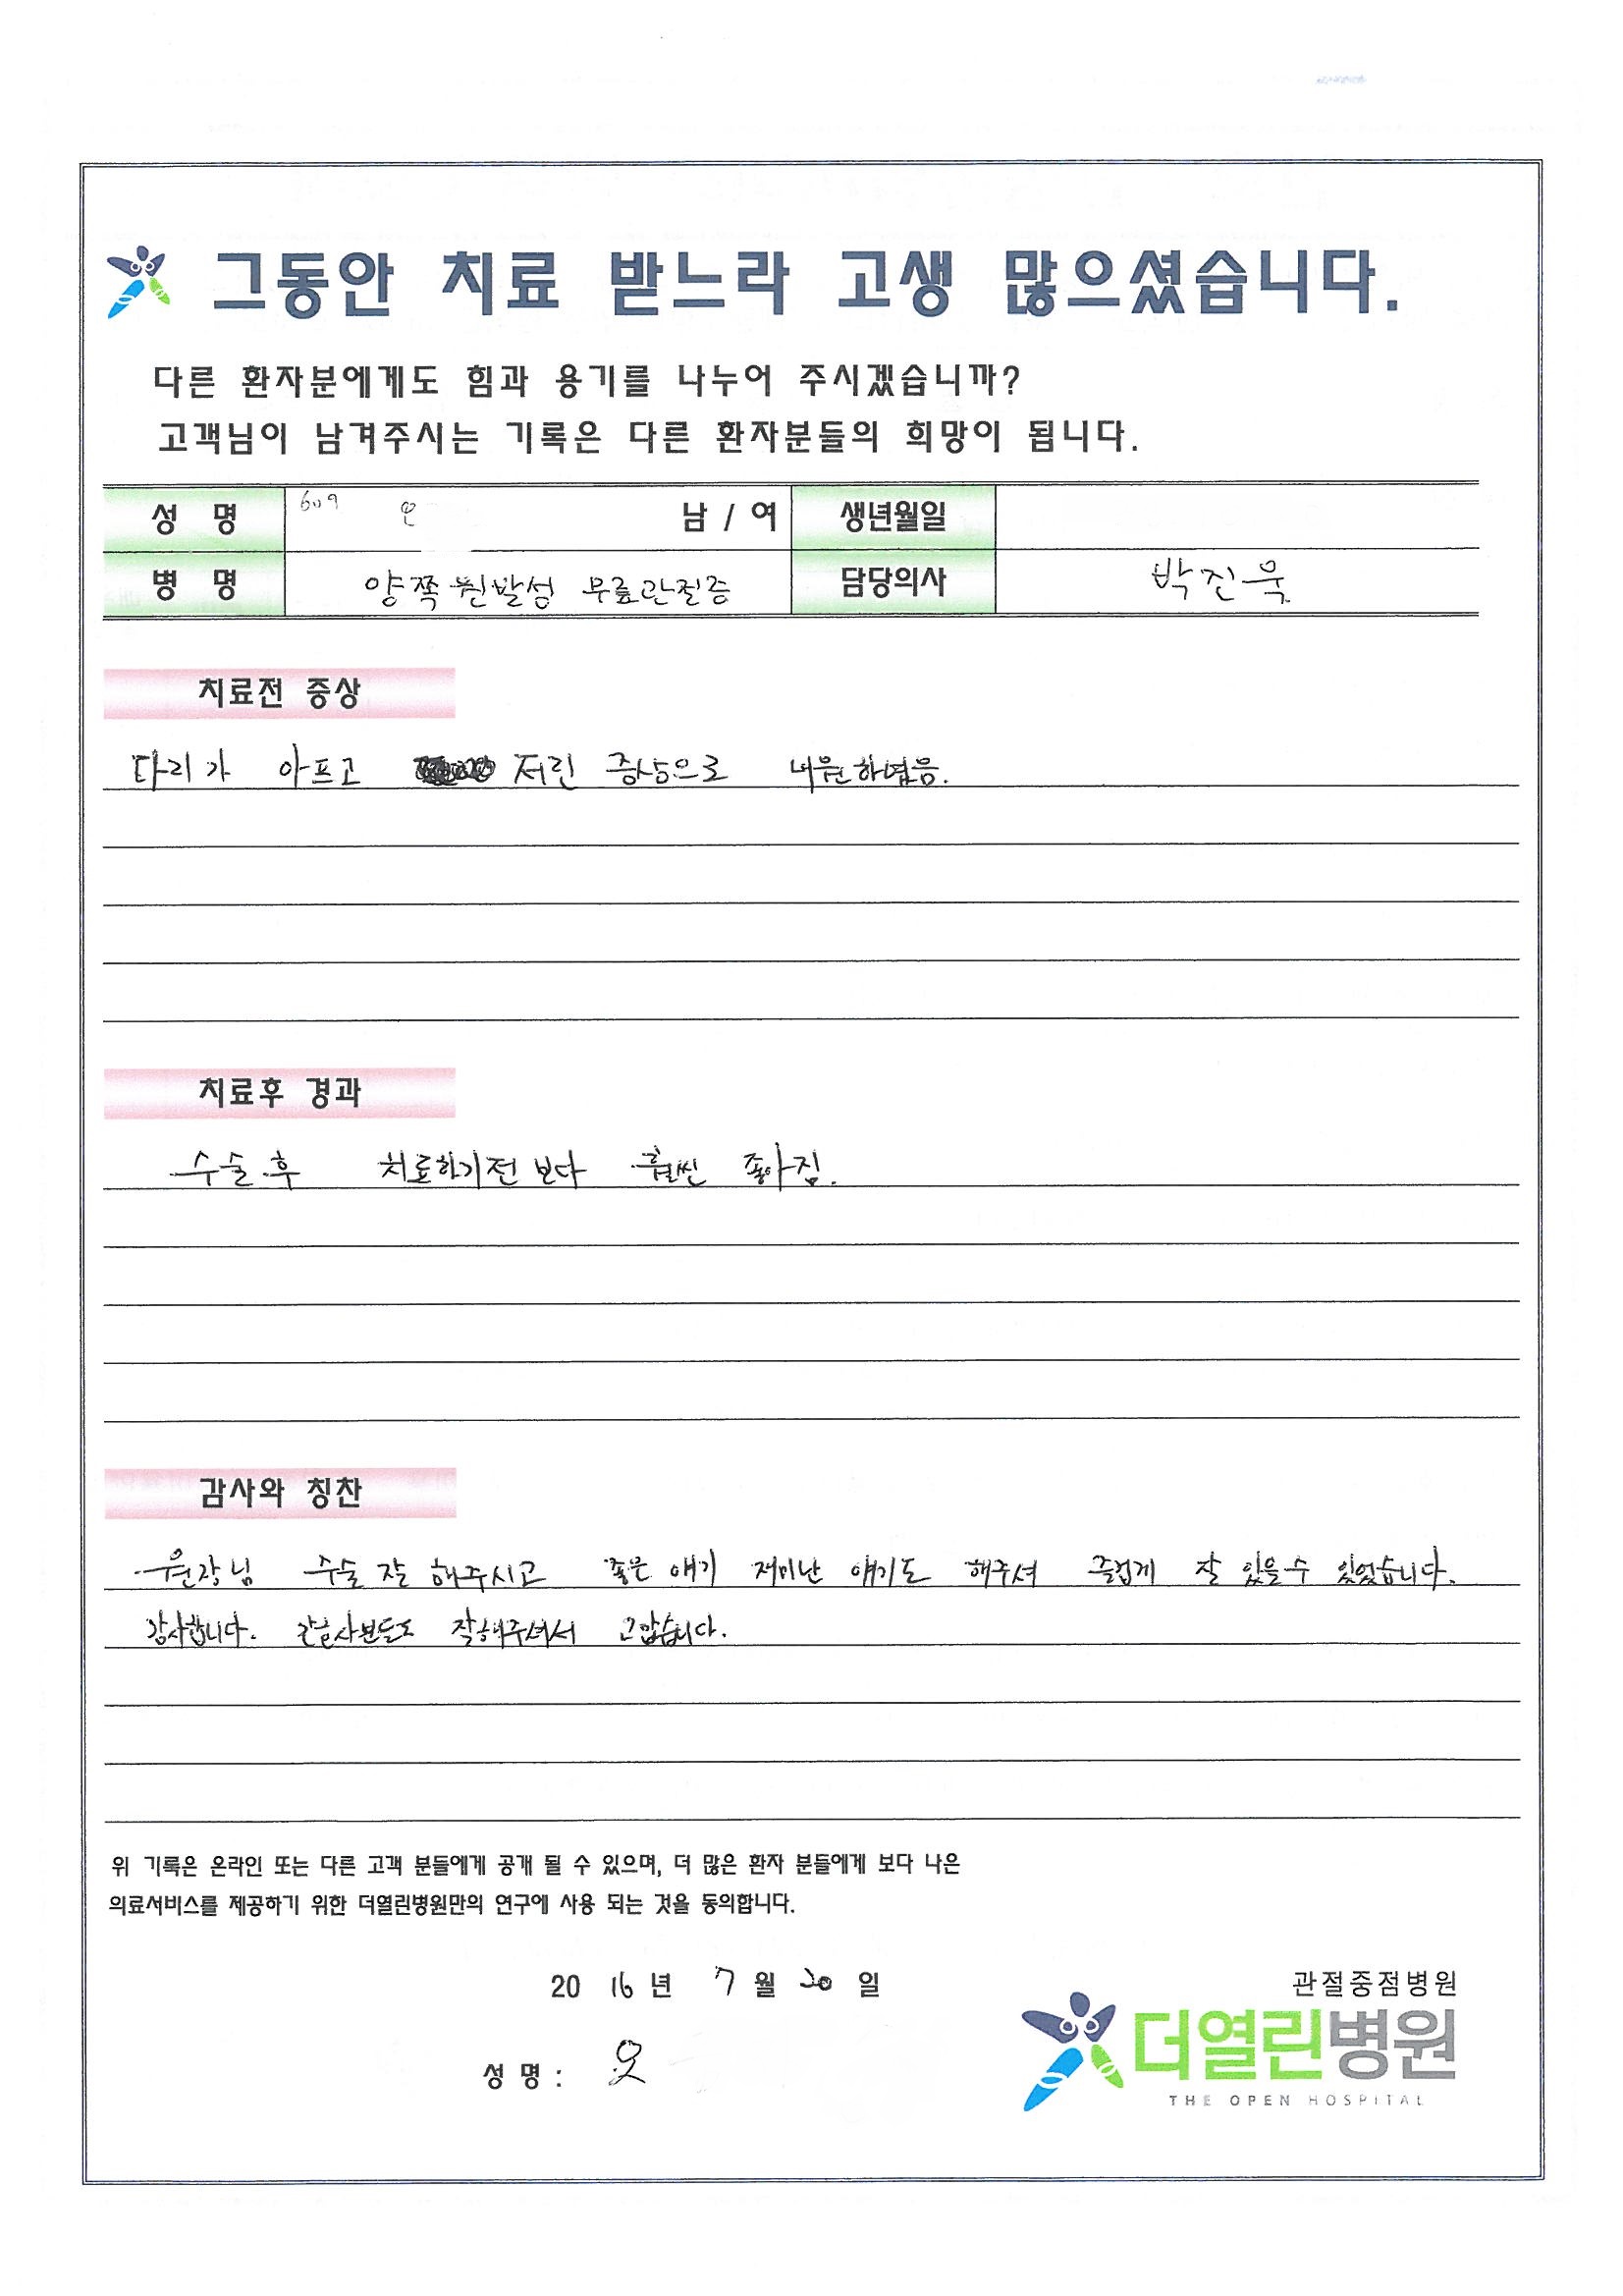 그동안 치료 받느라 고생 많으셨습니다.
다른 환자분에게도 힘과 용기를 나누어 주시겠습니까?
고객님이 남겨주시는 기록은 다른 환자분들의 희망이 됩니다.
성 명 609 남 / 여 생년월일
병 명 양쪽 원발성 무릎관절증 담당의사 박진욱
치료전 증상
다리가 아프고 저린 증상으로 내원하였음.
치료후 경과
수술후 치료하기전 보다 훨씬 좋아짐.
감사와 칭찬
원장님 수술 잘 해주시고 좋은 얘기 재미난 얘기도 해주셔 즐겁게 잘 있을수 있었습니다.
감사합니다. 간호사분들도 잘해주셔서 고맙습니다.
위 기록은 온라인 또는 다른 고객 분들에게 공개 될 수 있으며, 더 많은 환자 분들에게 보다 나은
의료서비스를 제공하기 위한 더열린병원만의 연구에 사용 되는 것을 동의합니다.
20 16 년 7 월 20 일
성 명 :
관절중점병원
더열린병원
THE OPEN HOSPITAL